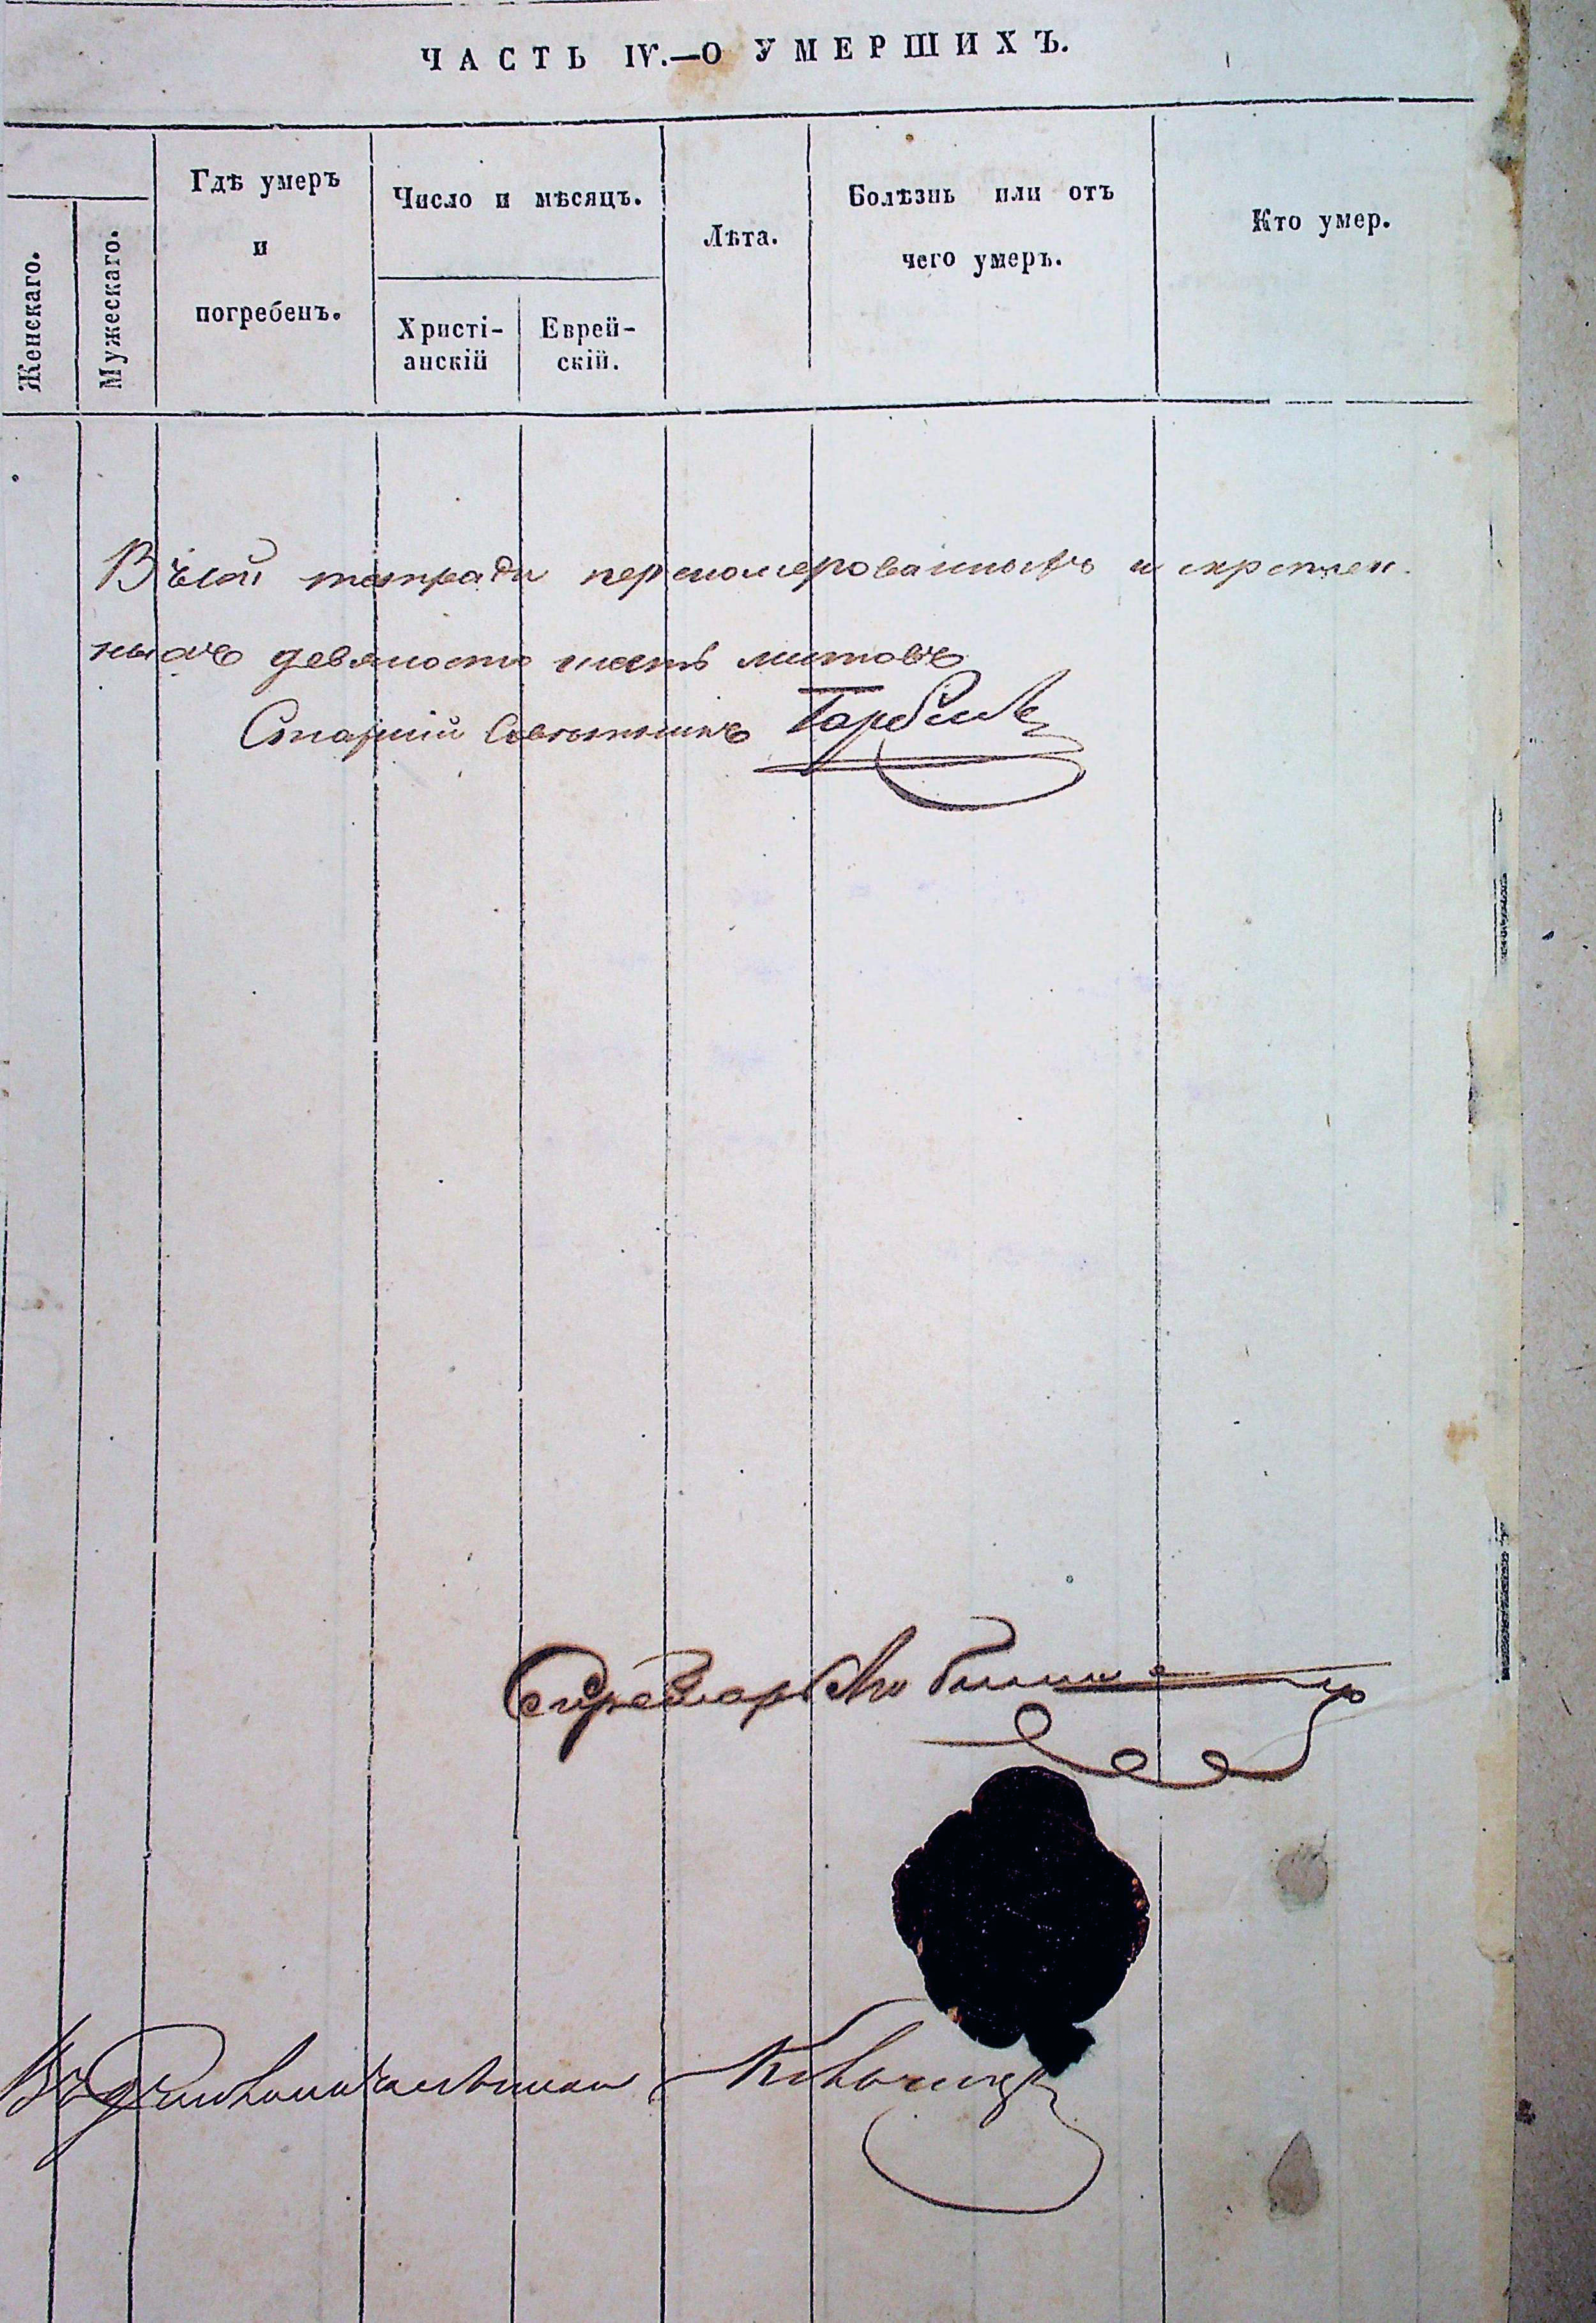 ЧАСТЬ IV.—О УМЕРШИХЪ.
Женскаго.
Мужескаго.
Гдѣ умеръ
и
погребенъ.
Число и мѣсяцъ.
Христі-
анскій
Еврей-
скій.
Лѣта.
Болѣзнь или отъ
чего умеръ.
Кто умер.
В сей тетради переномерованныхъ и скреплен.
ныхъ девяносто шесть листовъ
Старшій Совѣтникъ
Секретарь